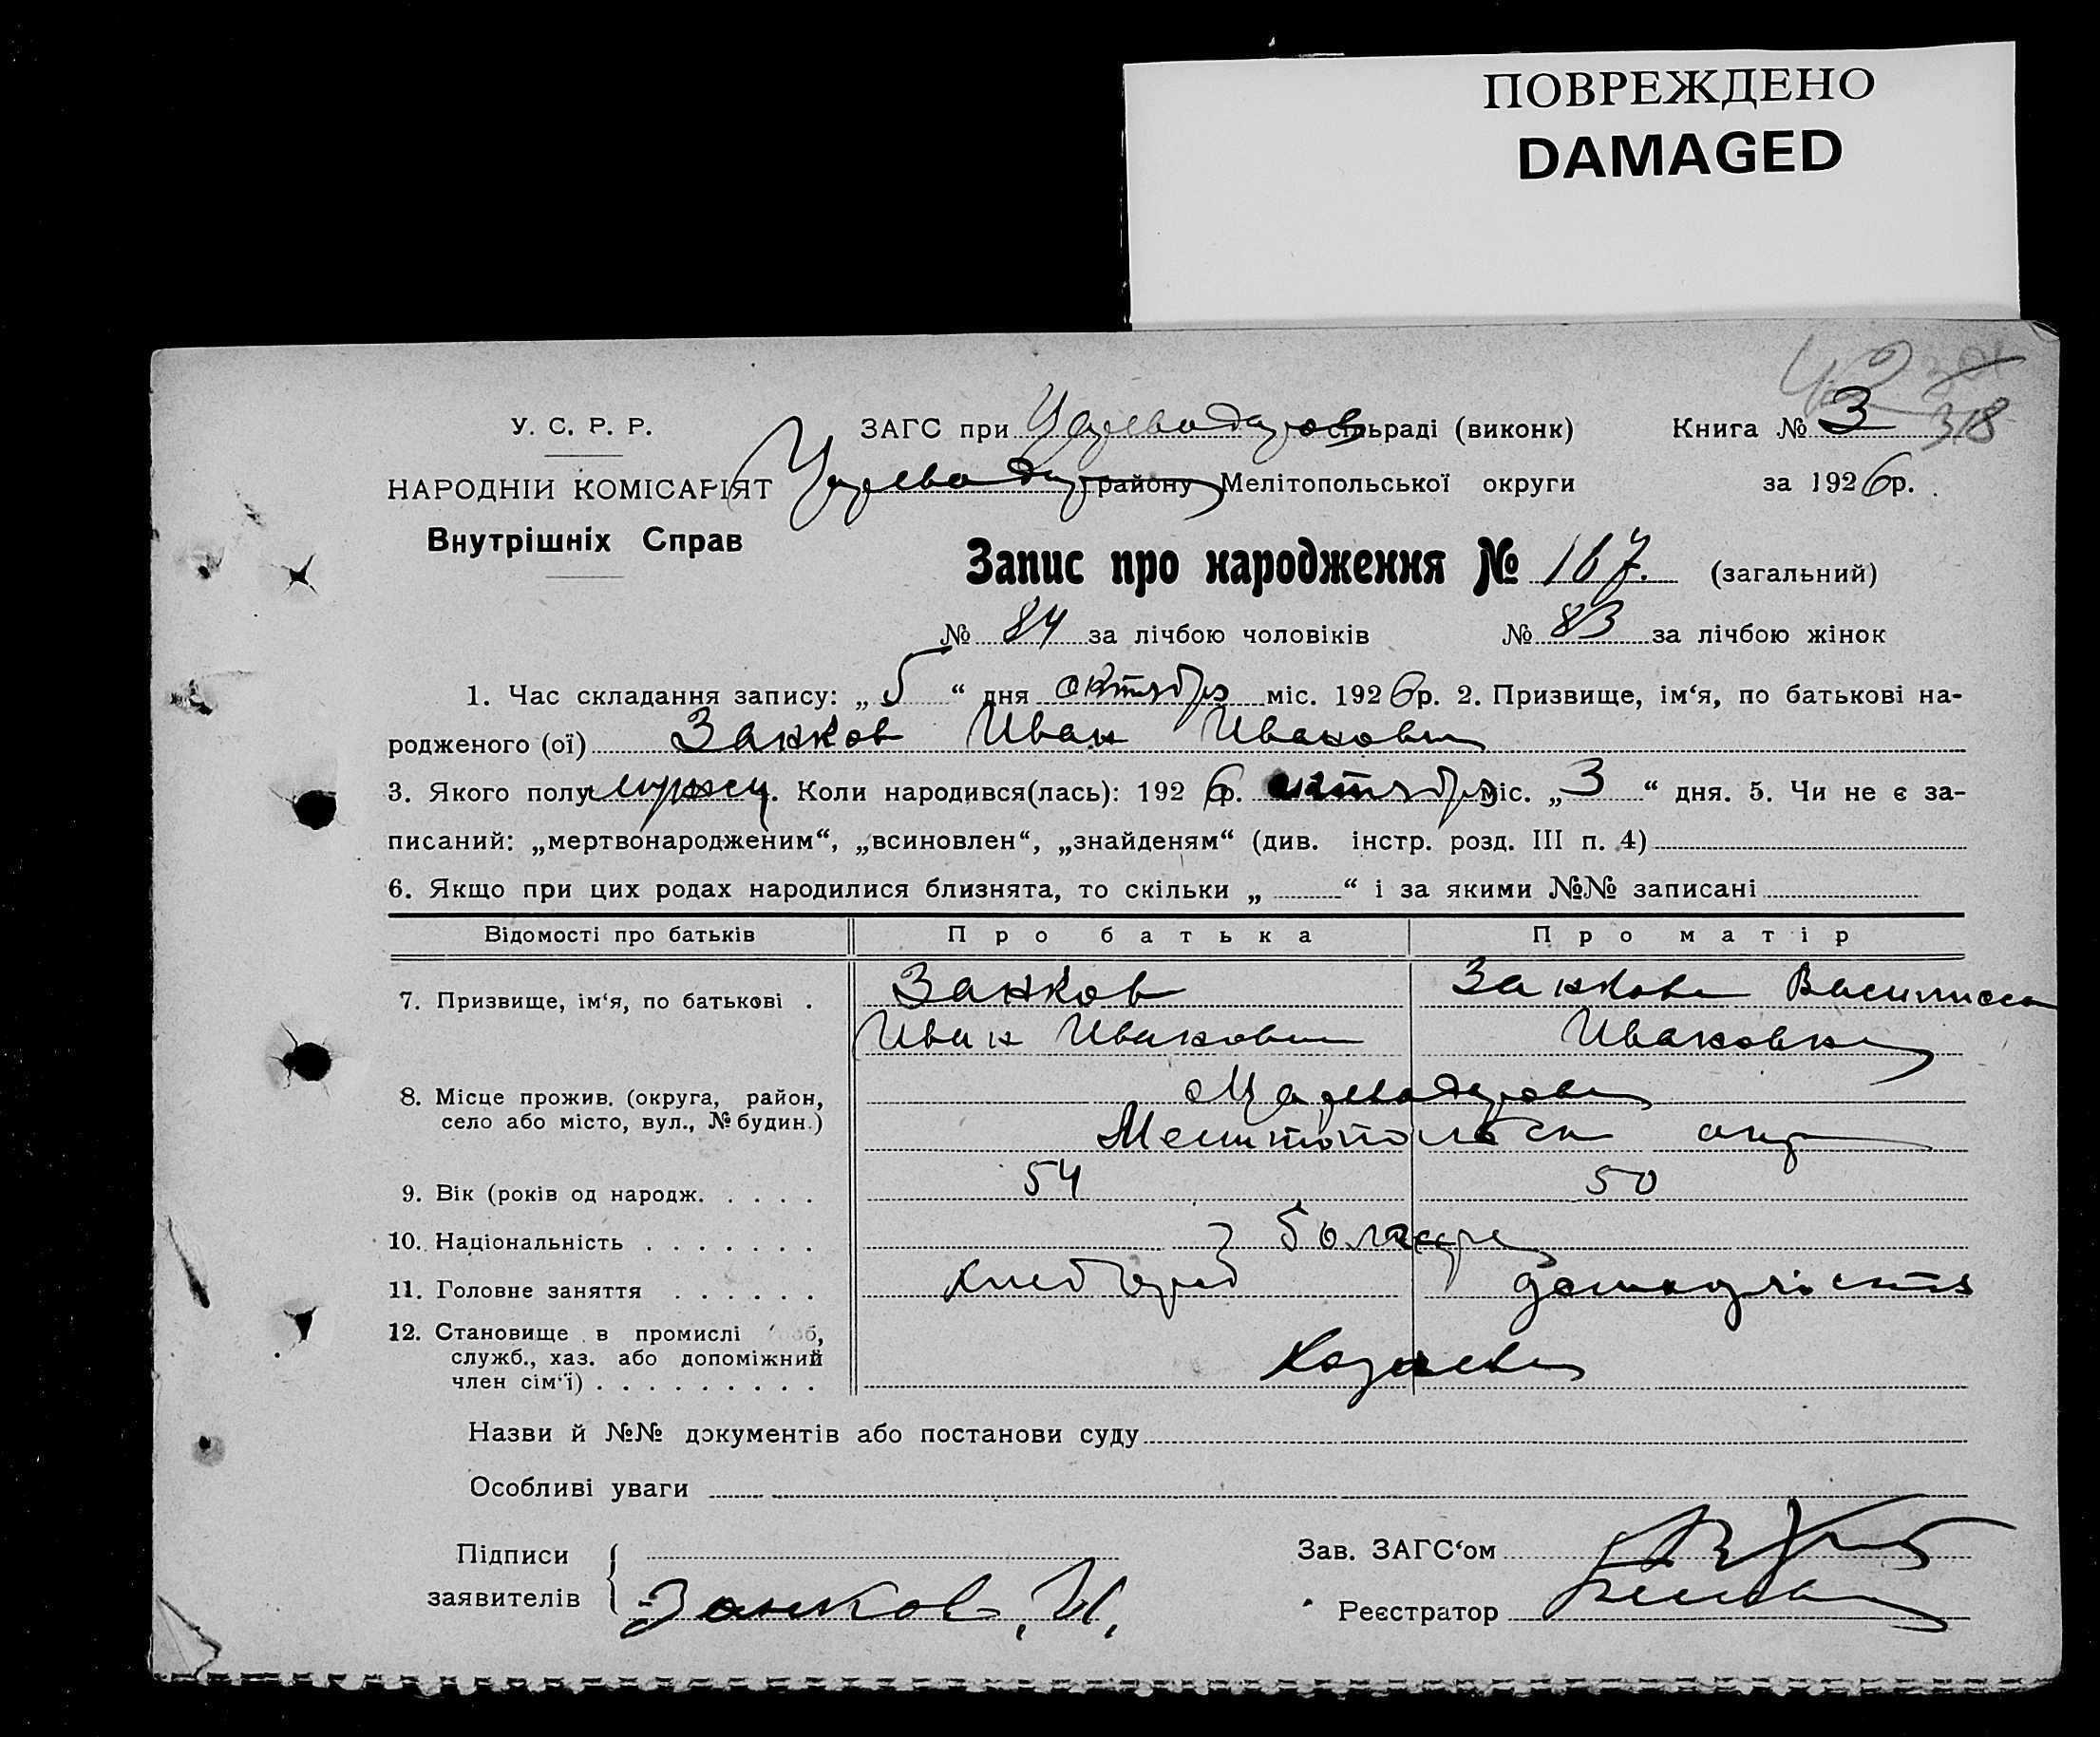 ПОВРЕЖДЕНО
DAMAGED
У. С. Р. Р.
НАРОДНІЙ КОМІСАРІЯТ
Внутрішніх Справ
318
ЗАГС при Цареводаров сільраді (виконк) Книга № 3
Цареводар району Мелітопольської округи за 1926 р.
Запис про народження № 167. (загальний)
№ 84 за лічбою чоловіків № 83 за лічбою жінок
1. Час складання запису: „5“ дня октября міс. 1926 р. 2. Призвище, ім‘я, по батькові на-
родженого (ої) Занков Иван Иванович
3. Якого полу мужск. Коли народився(лась): 1926 р. октября міс. „3“ дня. 5. Чи не є за-
писаний: „мертвонародженим“, „всиновлен“, „знайденям“ (див. інстр. розд. III п. 4)
6. Якщо при цих родах народилися близнята, то скільки „ “ і за якими №№ записані
Відомості про батьків Про батька Про матір
7. Призвище, ім‘я, по батькові . Занков Занкова Василисса
Иван Иванович Ивановна
8. Місце прожив. (округа, район,
село або місто, вул., № будин.)
Мелитопольск окр
9. Вік (років од народж. . . . . 54 50
10. Національність . . . . . . . болгаре
11. Головне заняття . . . . . . хлебороб домохозяйств
12. Становище в промислі б,
служб., хаз. або допоміжний
член сім‘ї) . . . . . . . . . Хозяева
Назви й №№ документів або постанови суду
Особливі уваги
Підписи
заявителів Занков. И.
Зав. ЗАГС‘ом
Реєстратор